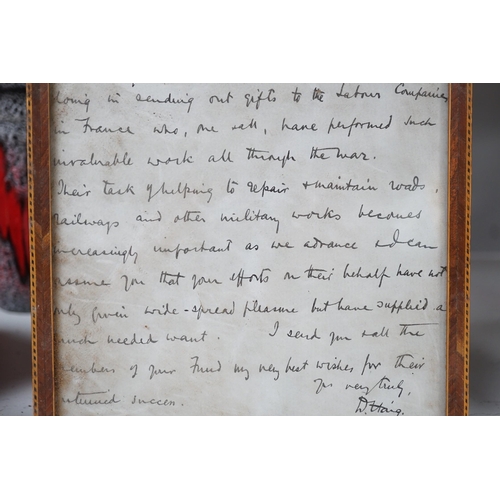 doing in sending out gifts to the Labour Companies
in France who, one & all, have performed such
invaluable work all through the war.
Their task of helping to repair & maintain roads,
railways and other military works becomes
increasingly important as we advance & I can
assure you that your efforts on their behalf have not
only given wide-spread pleasure but have supplied a
much needed want. I send you & all the
members of your Fund my very best wishes for their
continued success. Yrs very truly,
D. Haig.